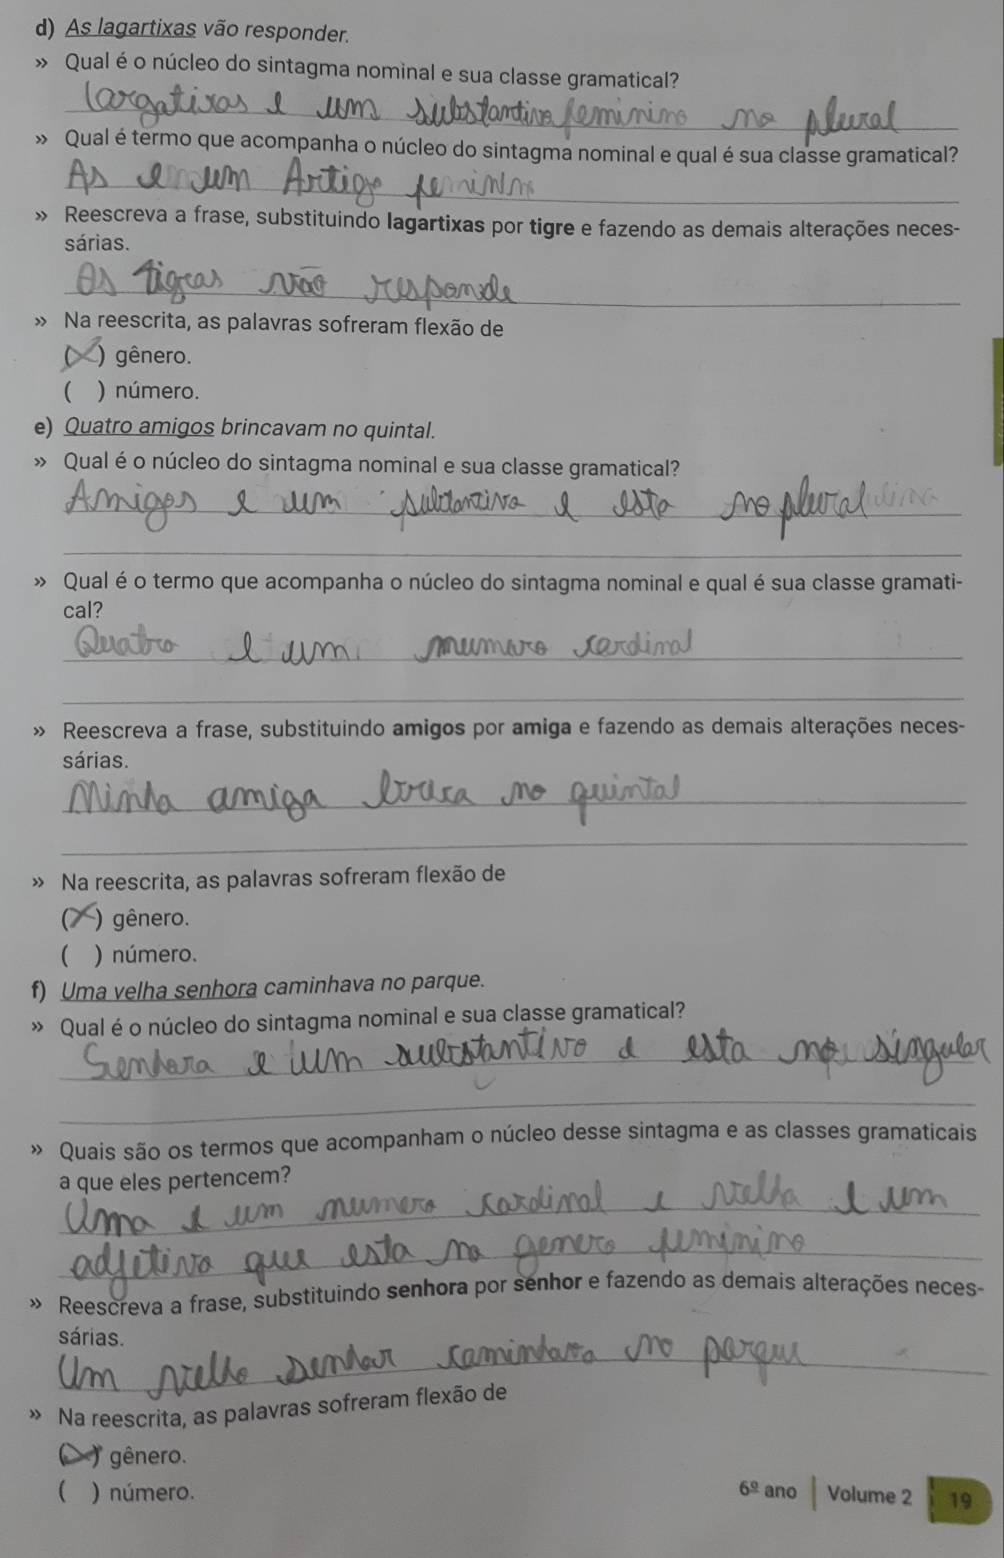 d) As lagartixas vão responder.
» Qual é o núcleo do sintagma nominal e sua classe gramatical?
largatixas e um substantivo feminino no plural
» Qual é termo que acompanha o núcleo do sintagma nominal e qual é sua classe gramatical?
As e um Artigo feminino
» Reescreva a frase, substituindo lagartixas por tigre e fazendo as demais alterações neces-
sárias.
Os tigras vão responde
» Na reescrita, as palavras sofreram flexão de
(X) gênero.
( ) número.
e) Quatro amigos brincavam no quintal.
» Qual é o núcleo do sintagma nominal e sua classe gramatical?
Amigos e um substantivo e esta no plural
» Qual é o termo que acompanha o núcleo do sintagma nominal e qual é sua classe gramati-
cal?
Quatro e um numero cardinal
» Reescreva a frase, substituindo amigos por amiga e fazendo as demais alterações neces-
sárias.
Minha amiga no quintal
» Na reescrita, as palavras sofreram flexão de
(X) gênero.
( ) número.
f) Uma velha senhora caminhava no parque.
» Qual é o núcleo do sintagma nominal e sua classe gramatical?
Senhora e um substantivo e esta no singular
» Quais são os termos que acompanham o núcleo desse sintagma e as classes gramaticais
a que eles pertencem?
Uma e um numero cardinal e velha e um
adjetivo que esta no genero feminino
» Reescreva a frase, substituindo senhora por senhor e fazendo as demais alterações neces-
sárias.
Um velho senhor caminhava no parque
» Na reescrita, as palavras sofreram flexão de
(X) gênero.
( ) número.
6º ano | Volume 2 19